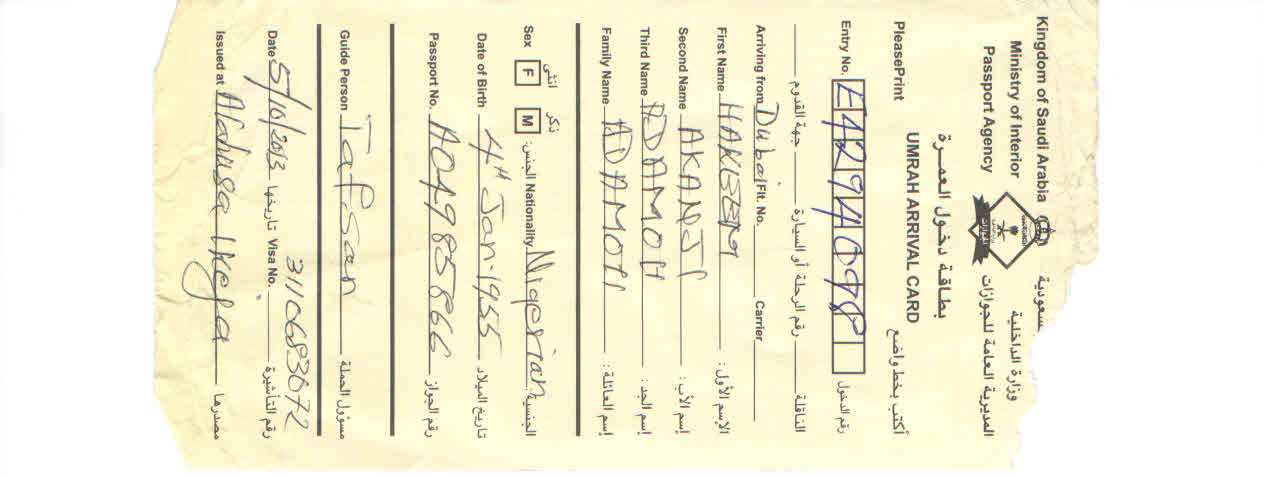 Kingdom of Saudi Arabia سعودية
Ministry of Interior وزارة الداخلية
Passport Agency المديرية العامة للجوازات
بطاقة دخول العمرة
UMRAH ARRIVAL CARD
PleasePrint أكتب بخط واضح
Entry No. E4294098 رقم الدخول
جهة القدوم رقم الرحلة أو السيارة الناقلة
Arriving from Dubai Flt. No. Carrier
First Name HAKEEM الإسم الأول :
Second Name AKANJI إسم الأب :
Third Name ADAMOH إسم الجد :
Family Name ADAMOH إسم العائلة :
أنثى ذكر
Sex F M الجنس: Nationality Nigerian الجنسية:
Date of Birth 4th Jan. 1955 تاريخ الميلاد
Passport No. A04985866 رقم الجواز
Guide Person Tafsan مسؤول الحملة
Date 5/10/2013 تاريخها Visa No. 3110683072 رقم التأشيرة
Issued at Alahusa Ikeja مصدرها